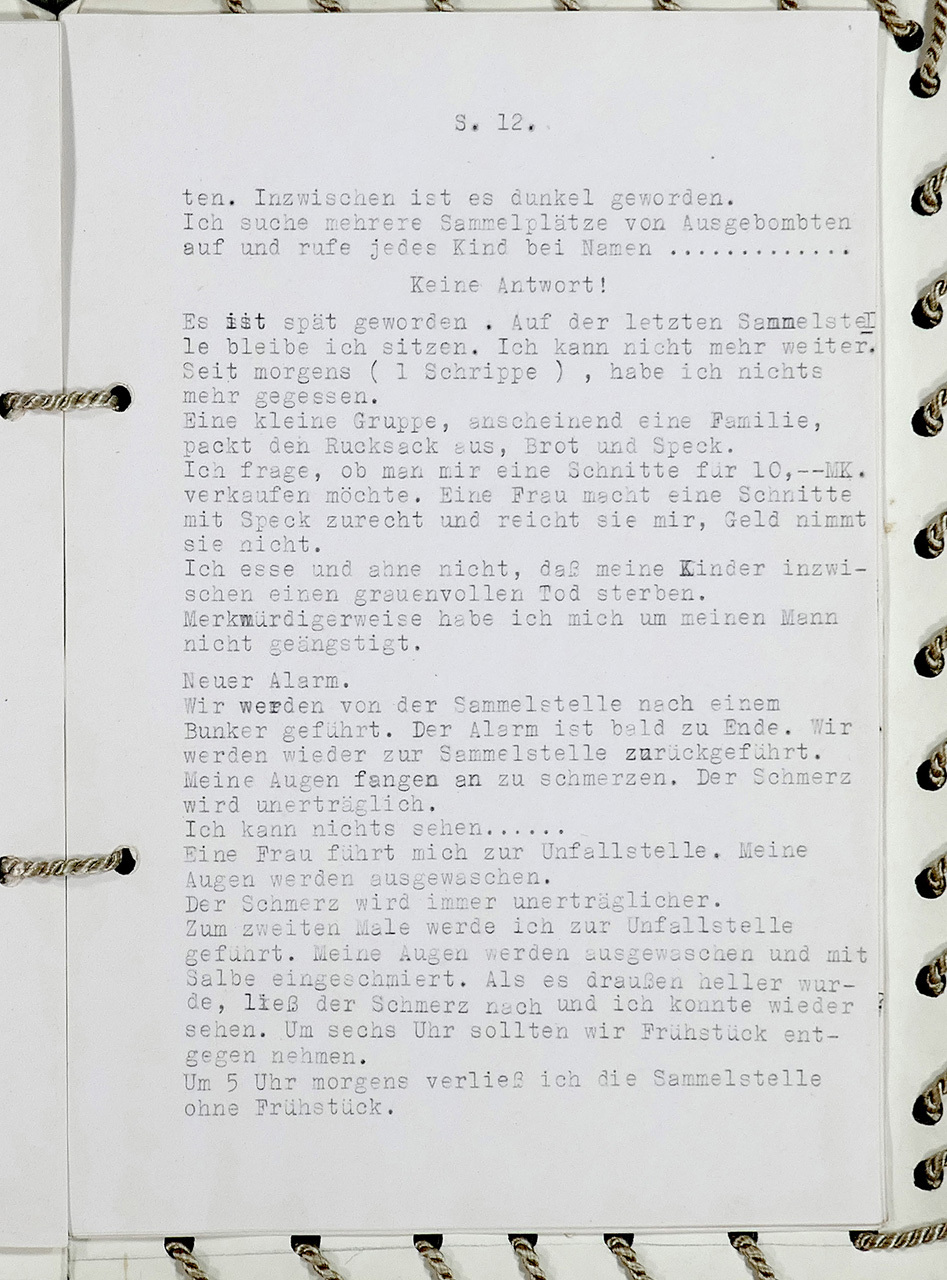 S. 12.
ten. Inzwischen ist es dunkel geworden.
Ich suche mehrere Sammelplätze von Ausgebombten
auf und rufe jedes Kind bei Namen .............
Keine Antwort!
Es ist spät geworden . Auf der letzten Sammelstel
le bleibe ich sitzen. Ich kann nicht mehr weiter.
Seit morgens ( 1 Schrippe ) , habe ich nichts
mehr gegessen.
Eine kleine Gruppe, anscheinend eine Familie,
packt den Rucksack aus, Brot und Speck.
Ich frage, ob man mir eine Schnitte für 10,--MK.
verkaufen möchte. Eine Frau macht eine Schnitte
mit Speck zurecht und reicht sie mir, Geld nimmt
sie nicht.
Ich esse und ahne nicht, daß meine Kinder inzwi-
schen einen grauenvollen Tod sterben.
Merkwürdigerweise habe ich mich um meinen Mann
nicht geängstigt.
Neuer Alarm.
Wir werden von der Sammelstelle nach einem
Bunker geführt. Der Alarm ist bald zu Ende. Wir
werden wieder zur Sammelstelle zurückgeführt.
Meine Augen fangen an zu schmerzen. Der Schmerz
wird unerträglich.
Ich kann nichts sehen......
Eine Frau führt mich zur Unfallstelle. Meine
Augen werden ausgewaschen.
Der Schmerz wird immer unerträglicher.
Zum zweiten Male werde ich zur Unfallstelle
geführt. Meine Augen werden ausgewaschen und mit
Salbe eingeschmiert. Als es draußen heller wur-
de, ließ der Schmerz nach und ich konnte wieder
sehen. Um sechs Uhr sollten wir Frühstück ent-
gegen nehmen.
Um 5 Uhr morgens verließ ich die Sammelstelle
ohne Frühstück.